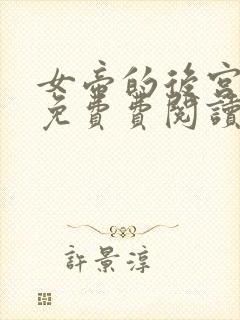 女帝的後宮
免費費閱讀
許景淳